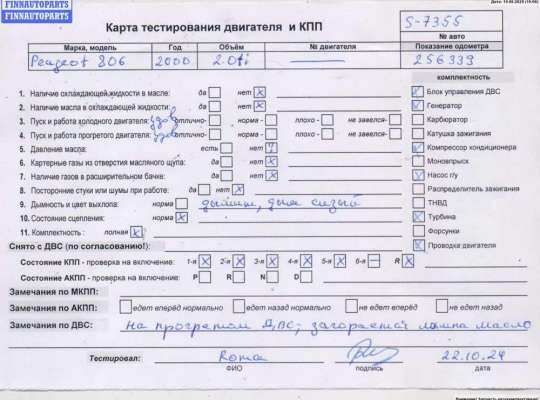 FINNAUTOPARTS
FINNAUTOPARTS
Карта тестирования двигателя и КПП
S-7355
№ авто
Марка, модель Год Объём № двигателя Показание одометра
Peugeot 806 2000 2.0ti — 256339
комплектность
1. Наличие охлаждающей жидкости в масле: да нет X
2. Наличие масла в охлаждающей жидкости: да нет X
3. Пуск и работа холодного двигателя: отлично- норма - плохо - не завелся-
4. Пуск и работа прогретого двигателя: отлично- норма - плохо - не завелся-
5. Давление масла: есть нет ?
6. Картерные газы из отверстия масляного щупа: да нет X
7. Наличие газов в расширительном бачке: да нет X
8. Посторонние стуки или шумы при работе: да нет X
9. Дымность и цвет выхлопа: норма дымит, дым сизый
10. Состояние сцепления: норма X
11. Комплектность : полная X
Блок управления ДВС
Генератор
Карбюратор
Катушка зажигания
Компрессор кондиционера
Моновпрыск
Насос г/у
Распределитель зажигания
ТНВД
Турбина
Форсунки
Проводка двигателя
Снято с ДВС (по согласованию!):
Состояние КПП - проверка на включение: 1-я X 2-я X 3-я X 4-я X 5-я X 6-я — R X
Состояние АКПП - проверка на включение: P R N D
Замечания по МКПП:
Замечания по АКПП: едет вперёд нормально едет назад нормально не едет вперёд не едет назад
Замечания по ДВС: на прогретом ДВС; загорается лампа масло
Тестировал: Roma 22.10.24
ФИО подпись дата